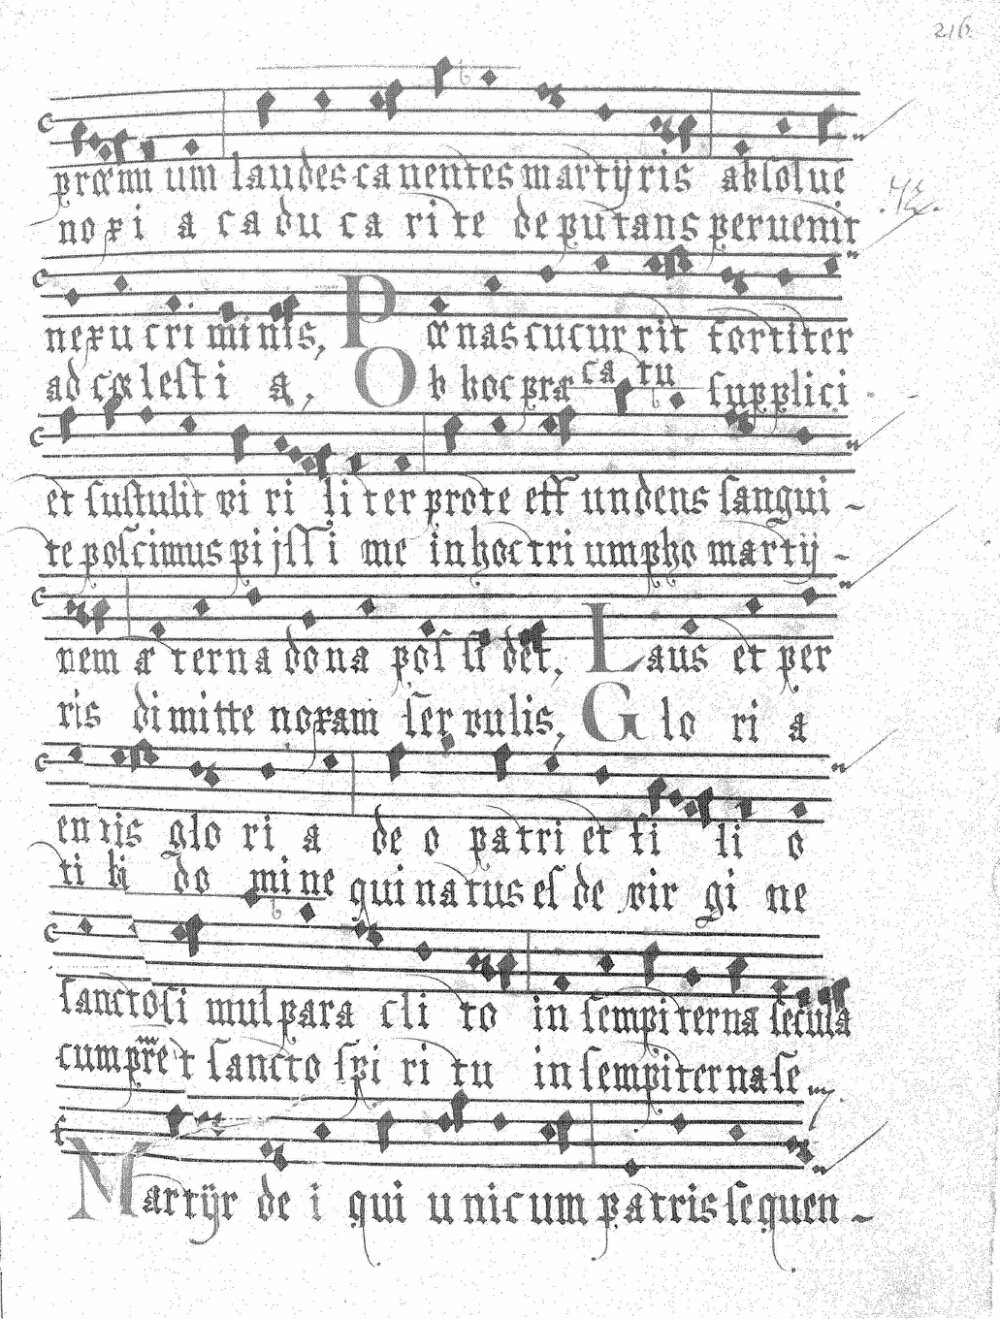 216
prœmi um laudes ca nentes martyris absolue
noxi a ca du ca ri te deputans peruenit
nexu cri minis, Pœnas cucur rit fortiter
ad cœlesti a, Ob hoc præ ca tu supplici
et sustulit vi ri li ter pro te effundens sangui-
te poscimus pi jssi me in hoc tri umpho martij-
nem æ terna dona possidet, Laus et per
ris dimitte noxam servulis, Glo ri a
ennis glo ri a deo patri et fi li o
ti bi do mi ne qui natus es de vir gi ne
sancto si mul para cli to in sempiterna secula
cum pre et sancto spi ri tu in sempiterna se
Martÿr de i qui unicum patris sequen-